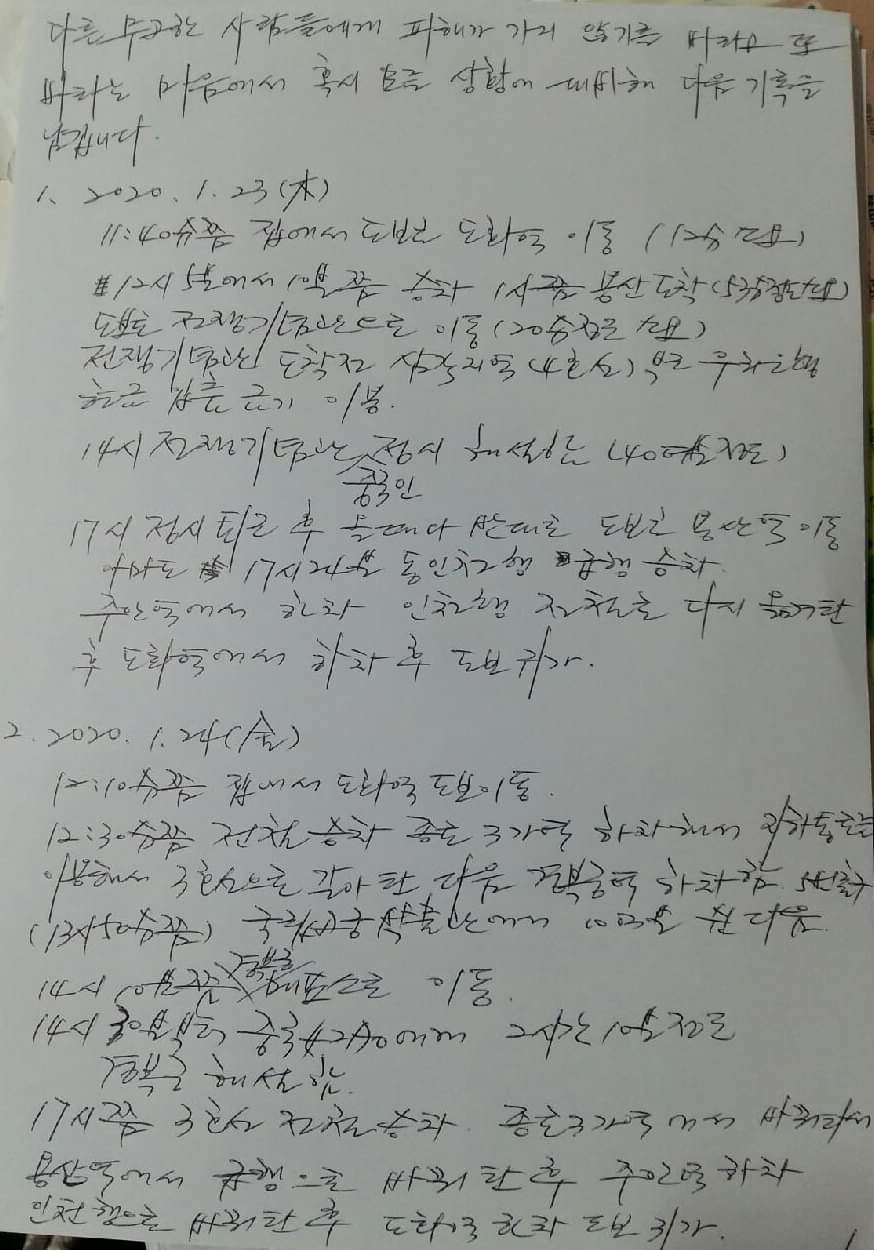 다른 무고한 사람들에게 피해가 가지 않기를 바라고 또
바라는 마음에서 혹시 모를 상황에 대비해 다음 기록을
남깁니다.
1. 2020. 1. 23(木)
11:40분쯤 집에서 도보로 도화역 이동 (12분 소요)
12시 5분에서 10분쯤 승차 1시쯤 용산 도착(53분정도 소요)
도보로 전쟁기념관으로 이동(20분정도 소요)
전쟁기념관 도착전 삼각지역(4호선) 부근 우리은행
현금 입출금기 이용.
14시 전쟁기념관 전시 해설함 (40여분정도)
중국인
17시 정시 퇴근 후 올때와 반대로 도보로 용산역 이동
아마도 17시 24분 동인천행 급행 승차.
주안역에서 하차 인천행 전철로 다시 옮겨탄
후 도화역에서 하차 후 도보 귀가.
2. 2020. 1. 24(金)
12:10분쯤 집에서 도화역 도보이동.
12:30분쯤 전철 승차 종로 3가역 하차해서 지하통로를
이용해서 3호선으로 갈아 탄 다음 경복궁역 하차함 5번출구
(13시50분쯤) 국립고궁박물관에서 10여분 쉰 다음
14시 10분쯤 경복궁 매표소로 이동.
14시 30분부터 중국 2人에게 2시간 10분정도
경복궁 해설함.
17시쯤 3호선 전철승차. 종로3가역에서 바꿔타서
용산역에서 급행으로 바꿔 탄 후 주안역 하차
인천행으로 바꿔 탄 후 도화역 하차 도보 귀가.
1